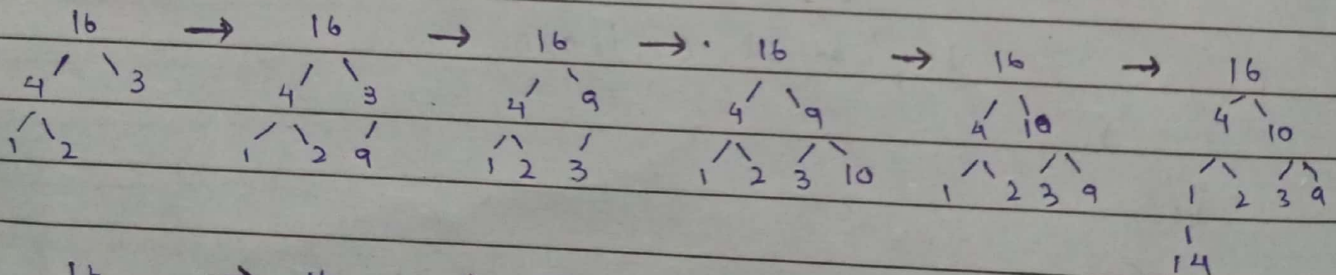 16 → 16 → 16 → · 16 → 16 → 16
4 3 4 3 4 9 4 9 4 10 4 10
1 2 1 2 9 1 2 3 1 2 3 10 1 2 3 9 1 2 3 9
14